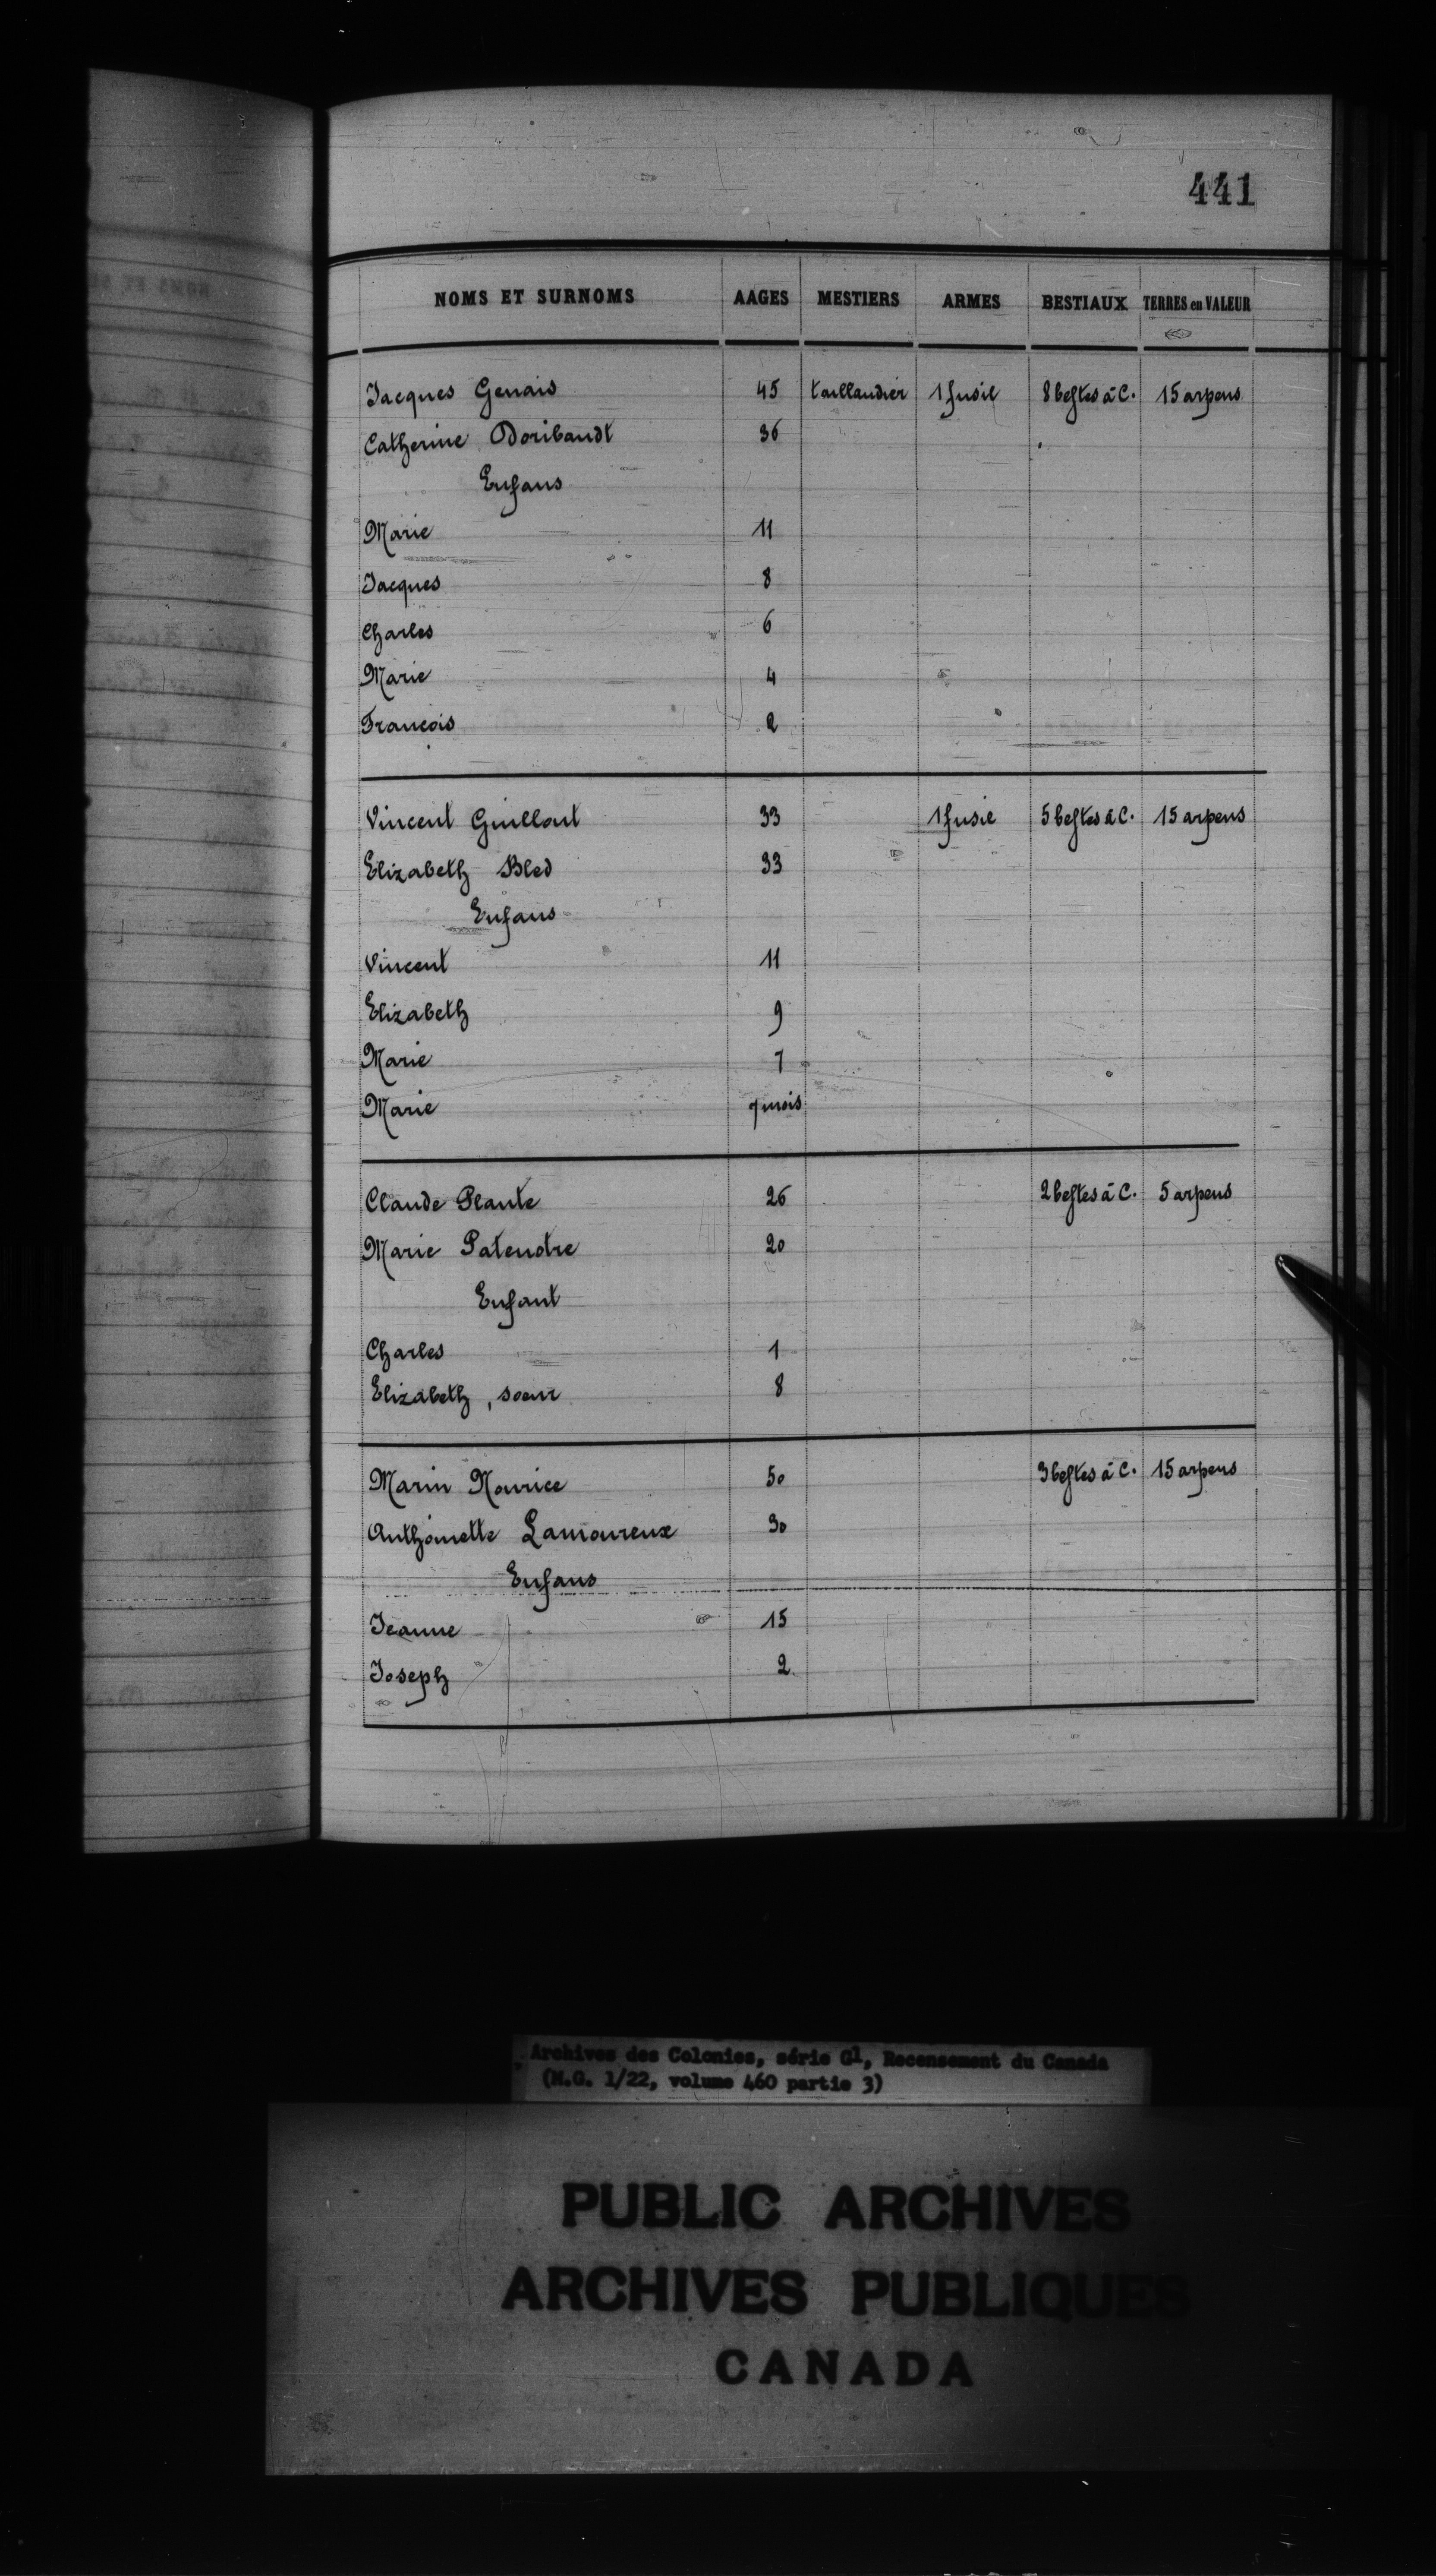 441
NOMS ET SURNOMS AAGES MESTIERS ARMES BESTIAUX TERRES en VALEUR
Jacques Genais 45 taillandier 1 fusil 8 bestes à C. 15 arpens
Catherine Doribaudt 36
Enfans
Marie 11
Jacques 8
Charles 6
Marie 4
François 2
Vincent Guillout 33 1 fusil 5 bestes à C. 15 arpens
Elizabeth Bled 33
Enfans
Vincent 11
Elizabeth 9
Marie 7
Marie 7 mois
Claude Plante 26 2 bestes à C. 5 arpens
Marie Patenotre 20
Enfant
Charles 1
Elizabeth, soeur 8
Marin Nourice 50 3 bestes à C. 15 arpens
Anthoinette Lamoureux 30
Enfans
Jeanne 15
Joseph 2
Archives des Colonies, série G1, Recensement du Canada
(M.G. 1/22, volume 460 partie 3)
PUBLIC ARCHIVES
ARCHIVES PUBLIQUES
CANADA